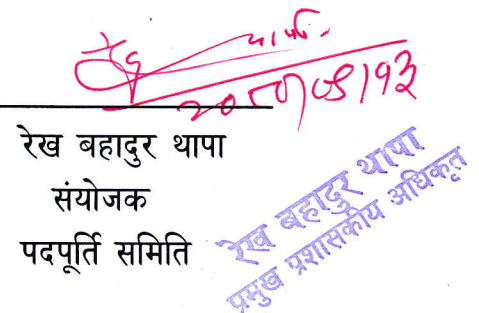 रेख बहादुर थापा
संयोजक
पदपूर्ति समिति
रेख बहादुर थापा
प्रमुख प्रशासकीय अधिकृत